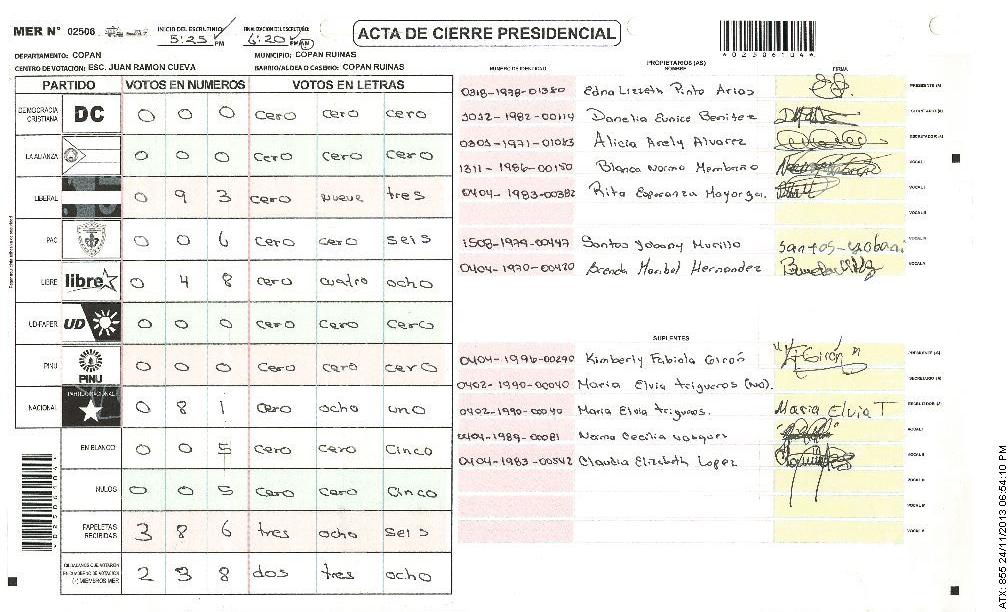 MER N° 02506
INICIO DEL ESCRUTINIO 5:25 PM
FINALIZACION DEL ESCRUTINIO 6:20 PM
ACTA DE CIERRE PRESIDENCIAL
DEPARTAMENTO: COPAN
MUNICIPIO: COPAN RUINAS
CENTRO DE VOTACION: ESC. JUAN RAMON CUEVA
BARRIO/ALDEA O CASERIO: COPAN RUINAS
PARTIDO VOTOS EN NUMEROS VOTOS EN LETRAS
DEMOCRACIA CRISTIANA DC 0 0 0 cero cero cero
LA ALIANZA 0 0 0 cero cero cero
LIBERAL 0 9 3 cero nueve tres
PAC 0 0 6 cero cero seis
LIBRE libre 0 4 8 cero cuatro ocho
UD-FAPER UD 0 0 0 cero cero cero
PINU PINU 0 0 0 cero cero cero
NACIONAL 0 8 1 cero ocho uno
EN BLANCO 0 0 5 cero cero cinco
NULOS 0 0 5 cero cero cinco
PAPELETAS RECIBIDAS 3 8 6 tres ocho seis
2 3 8 dos tres ocho
PROPIETARIOS (AS)
NUMERO DE IDENTIDAD NOMBRE FIRMA
0318-1978-01380 Edna Lizzeth Pinto Arios PRESIDENTE (A)
Danelia Eunice Benitez SECRETARIO (A)
Alicia Arely Alvarez ESCRUTADOR (A)
1311-1986-00150 VOCAL I
0404-1983-00382 Rita Esperanza Mayorga.
1508-1979-00447 Santos Yobany Murillo
0404-1970-00420 Brenda Maribel Hernandez
SUPLENTES
0404-1996-00290 Kimberly Fabiola Girón PRESIDENTE (A)
0402-1990-00040 Maria Elvia trigueros (No). SECRETARIO (A)
0402-1990-00040 Maria Elvia trigueros. Maria Elvia T
0404-1989-00081 Norma Cecilia Vasquez
0404-1983-00542 Claudia Elizabeth Lopez
ATX: 855 24/11/2013 06:54:10 PM